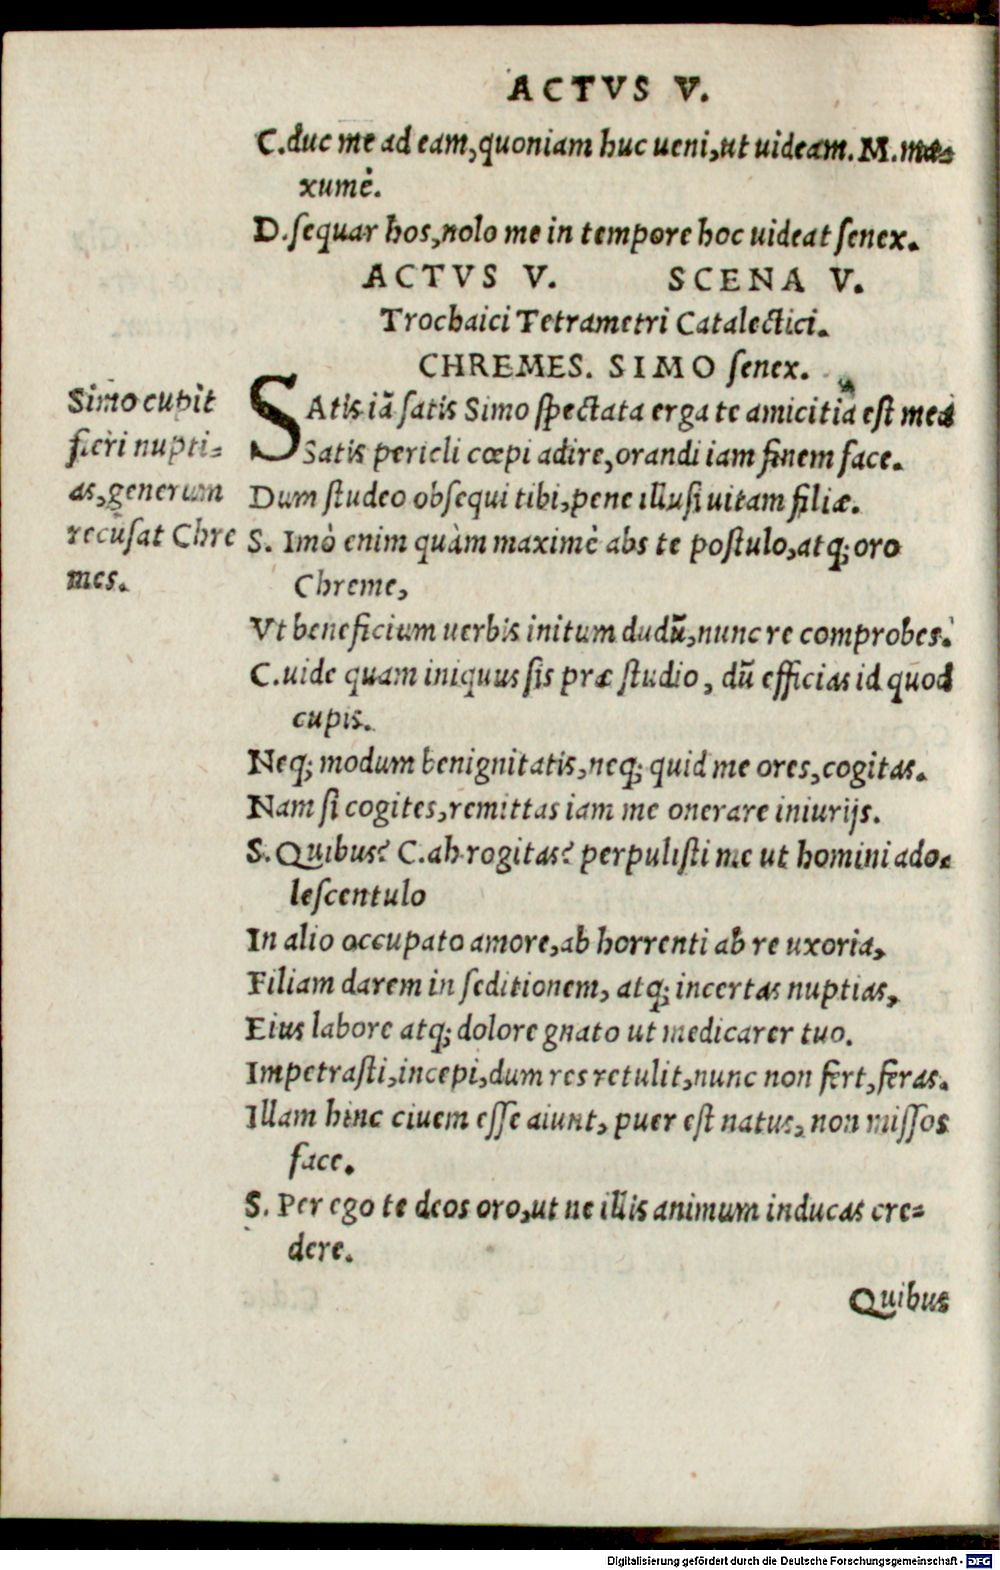 ACTVS V.
C.duc me ad eam,quoniam huc ueni,ut uideam. M.ma-
xumè.
D.sequar hos,nolo me in tempore hoc uideat senex.
ACTVS V. SCENA V.
Trochaici Tetrametri Catalectici.
CHREMES. SIMO senex.
SAtis iā satis Simo spectata erga te amicitia est mea
Satis pericli cœpi adire,orandi iam finem face.
Dum studeo obsequi tibi,pene illusi uitam filiæ.
S. Imò enim quàm maximè abs te postulo,atq; oro
Chreme,
Vt beneficium uerbis initum dudū,nunc re comprobes.
C.uide quam iniquus sis præ studio, dū efficias id quod
cupis.
Neq; modum benignitatis,neq; quid me ores,cogitas.
Nam si cogites,remittas iam me onerare iniurijs.
S. Quibus? C.ah rogitas? perpulisti me ut homini ado-
lescentulo
In alio occupato amore,ab horrenti ab re uxoria,
Filiam darem in seditionem, atq; incertas nuptias,
Eius labore atq; dolore gnato ut medicarer tuo.
Impetrasti,incepi,dum res retulit,nunc non fert,feras.
Illam hinc ciuem esse aiunt, puer est natus, non missos
face.
S. Per ego te deos oro,ut ne illis animum inducas cre-
dere.
Quibus
Simo cupit
fieri nupti-
as,generum
recusat Chre
mes.
Digitalisierung gefördert durch die Deutsche Forschungsgemeinschaft - DFG